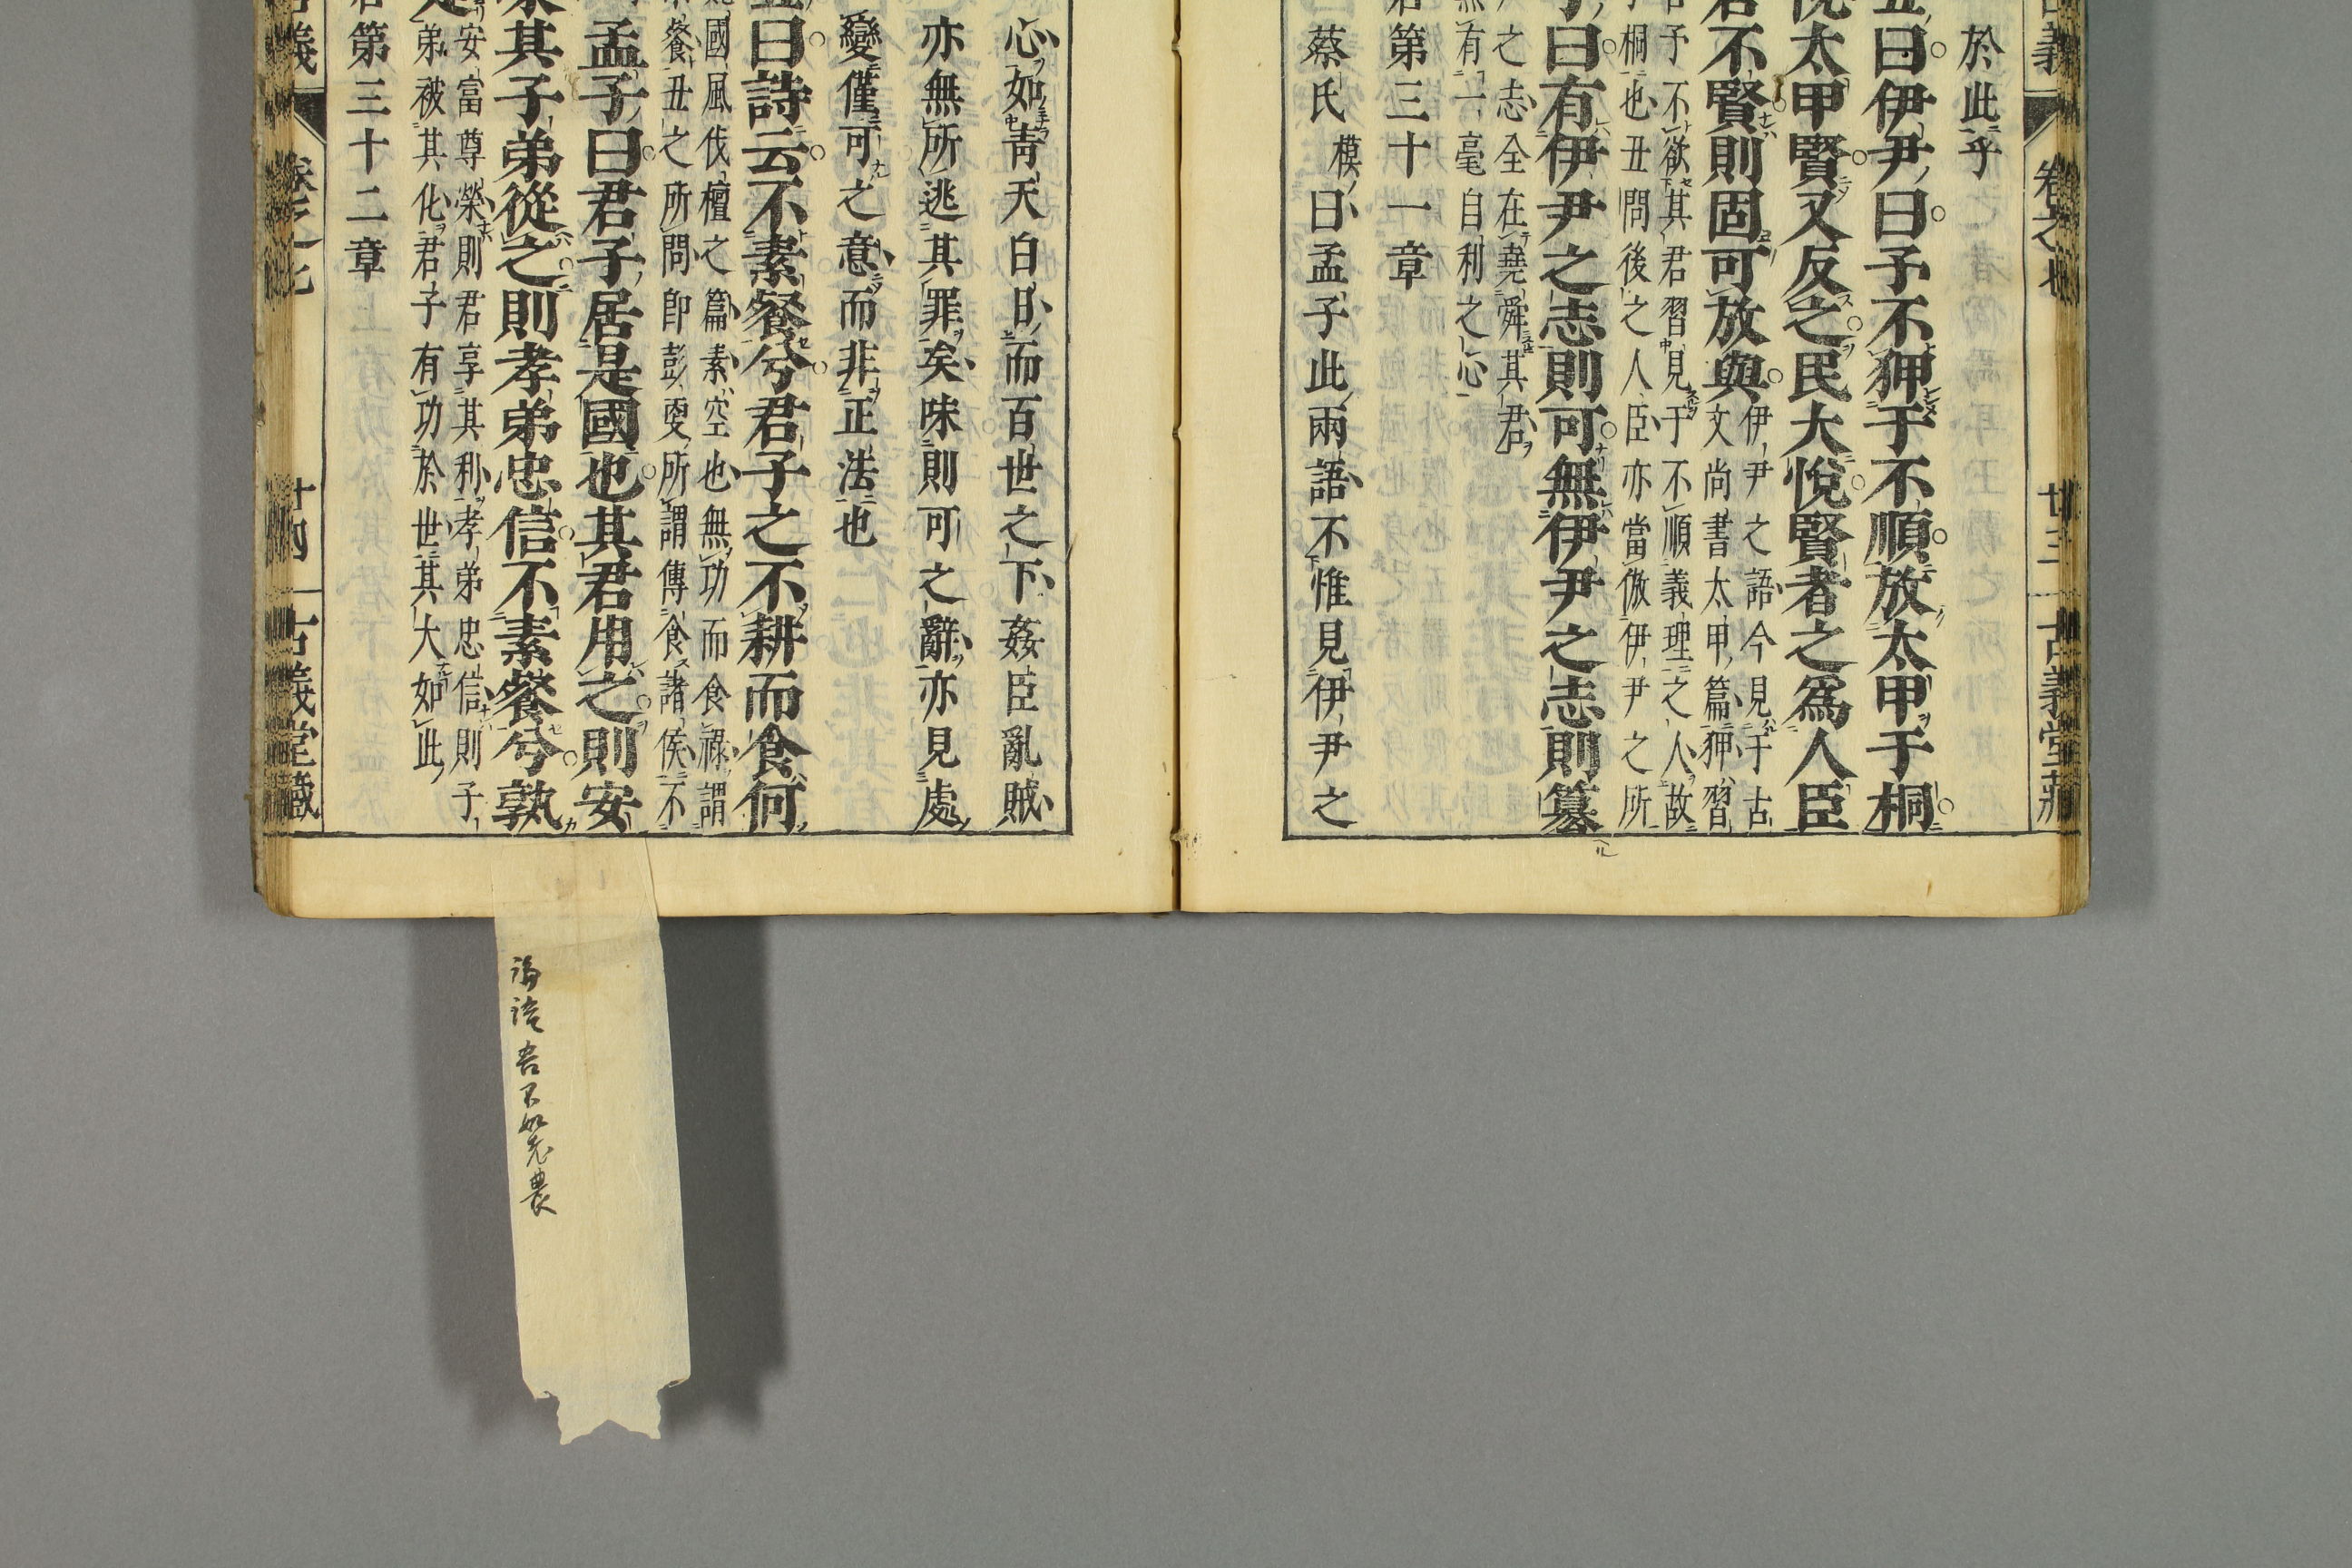 義 卷之七 廿三 古義堂藏
於此乎
丑曰伊尹曰予不狎于不順放太甲于桐
悅太甲賢又反之民大悅賢者之爲人臣
君不賢則固可放與
伊尹之語今見于古
文尚書太甲篇狎習
予不欲其君習見于不順義理之人故
桐也丑問後之人臣亦當倣伊尹之所
子曰有伊尹之志則可無伊尹之志則篡
之志全在堯舜其君
無有一毫自利之心
君第三十一章
蔡氏模曰孟子此兩語不惟見伊尹之
心如靑天白日而百世之下姦臣亂賊
亦無所逃其罪矣味則可之辭亦見處
變僅可之意而非正法也
丑曰詩云不素餐兮君子之不耕而食何
國風伐檀之篇素空也無功而食祿謂
餐丑之所問卽彭更所謂傳食諸侯不
孟子曰君子居是國也其君用之則安
其子弟從之則孝弟忠信不素餐兮孰
安富尊榮則君享其利孝弟忠信則子
弟被其化君子有功於世其大如此
第三十二章
義 卷之七 廿四 古義堂藏
論語吾不如老農